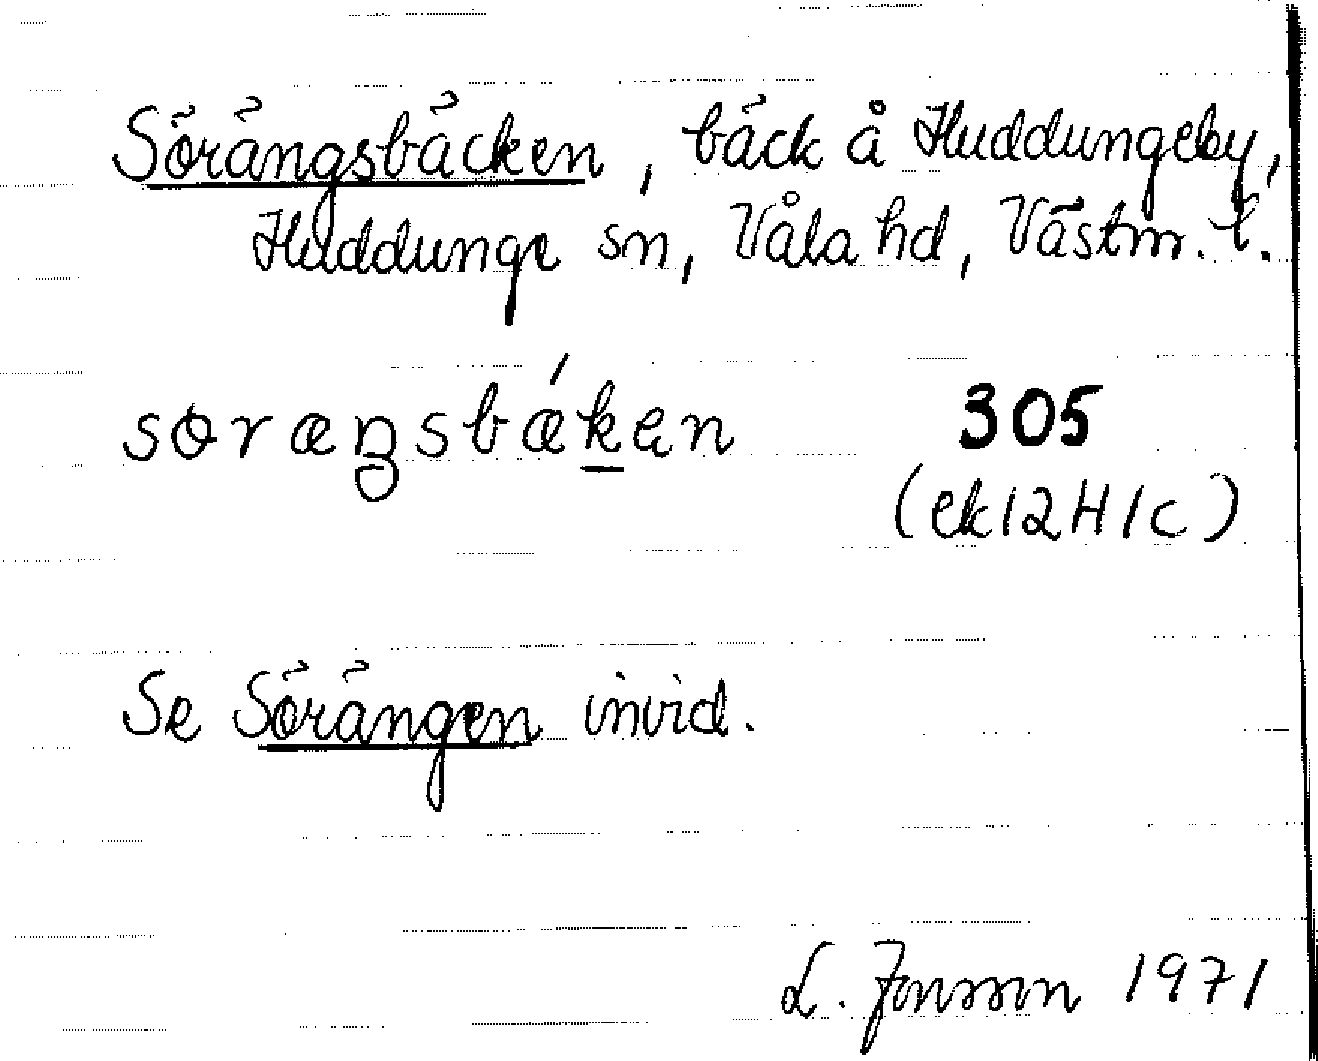 Sörängsbäcken, bäck å Huddungeby,
Huddunge sn, Våla hd, Västm. l.
sɵræŋsbǽk̲en 305
(ek 12H1c)
Se Sörängen invid.
L. Jonsson 1971